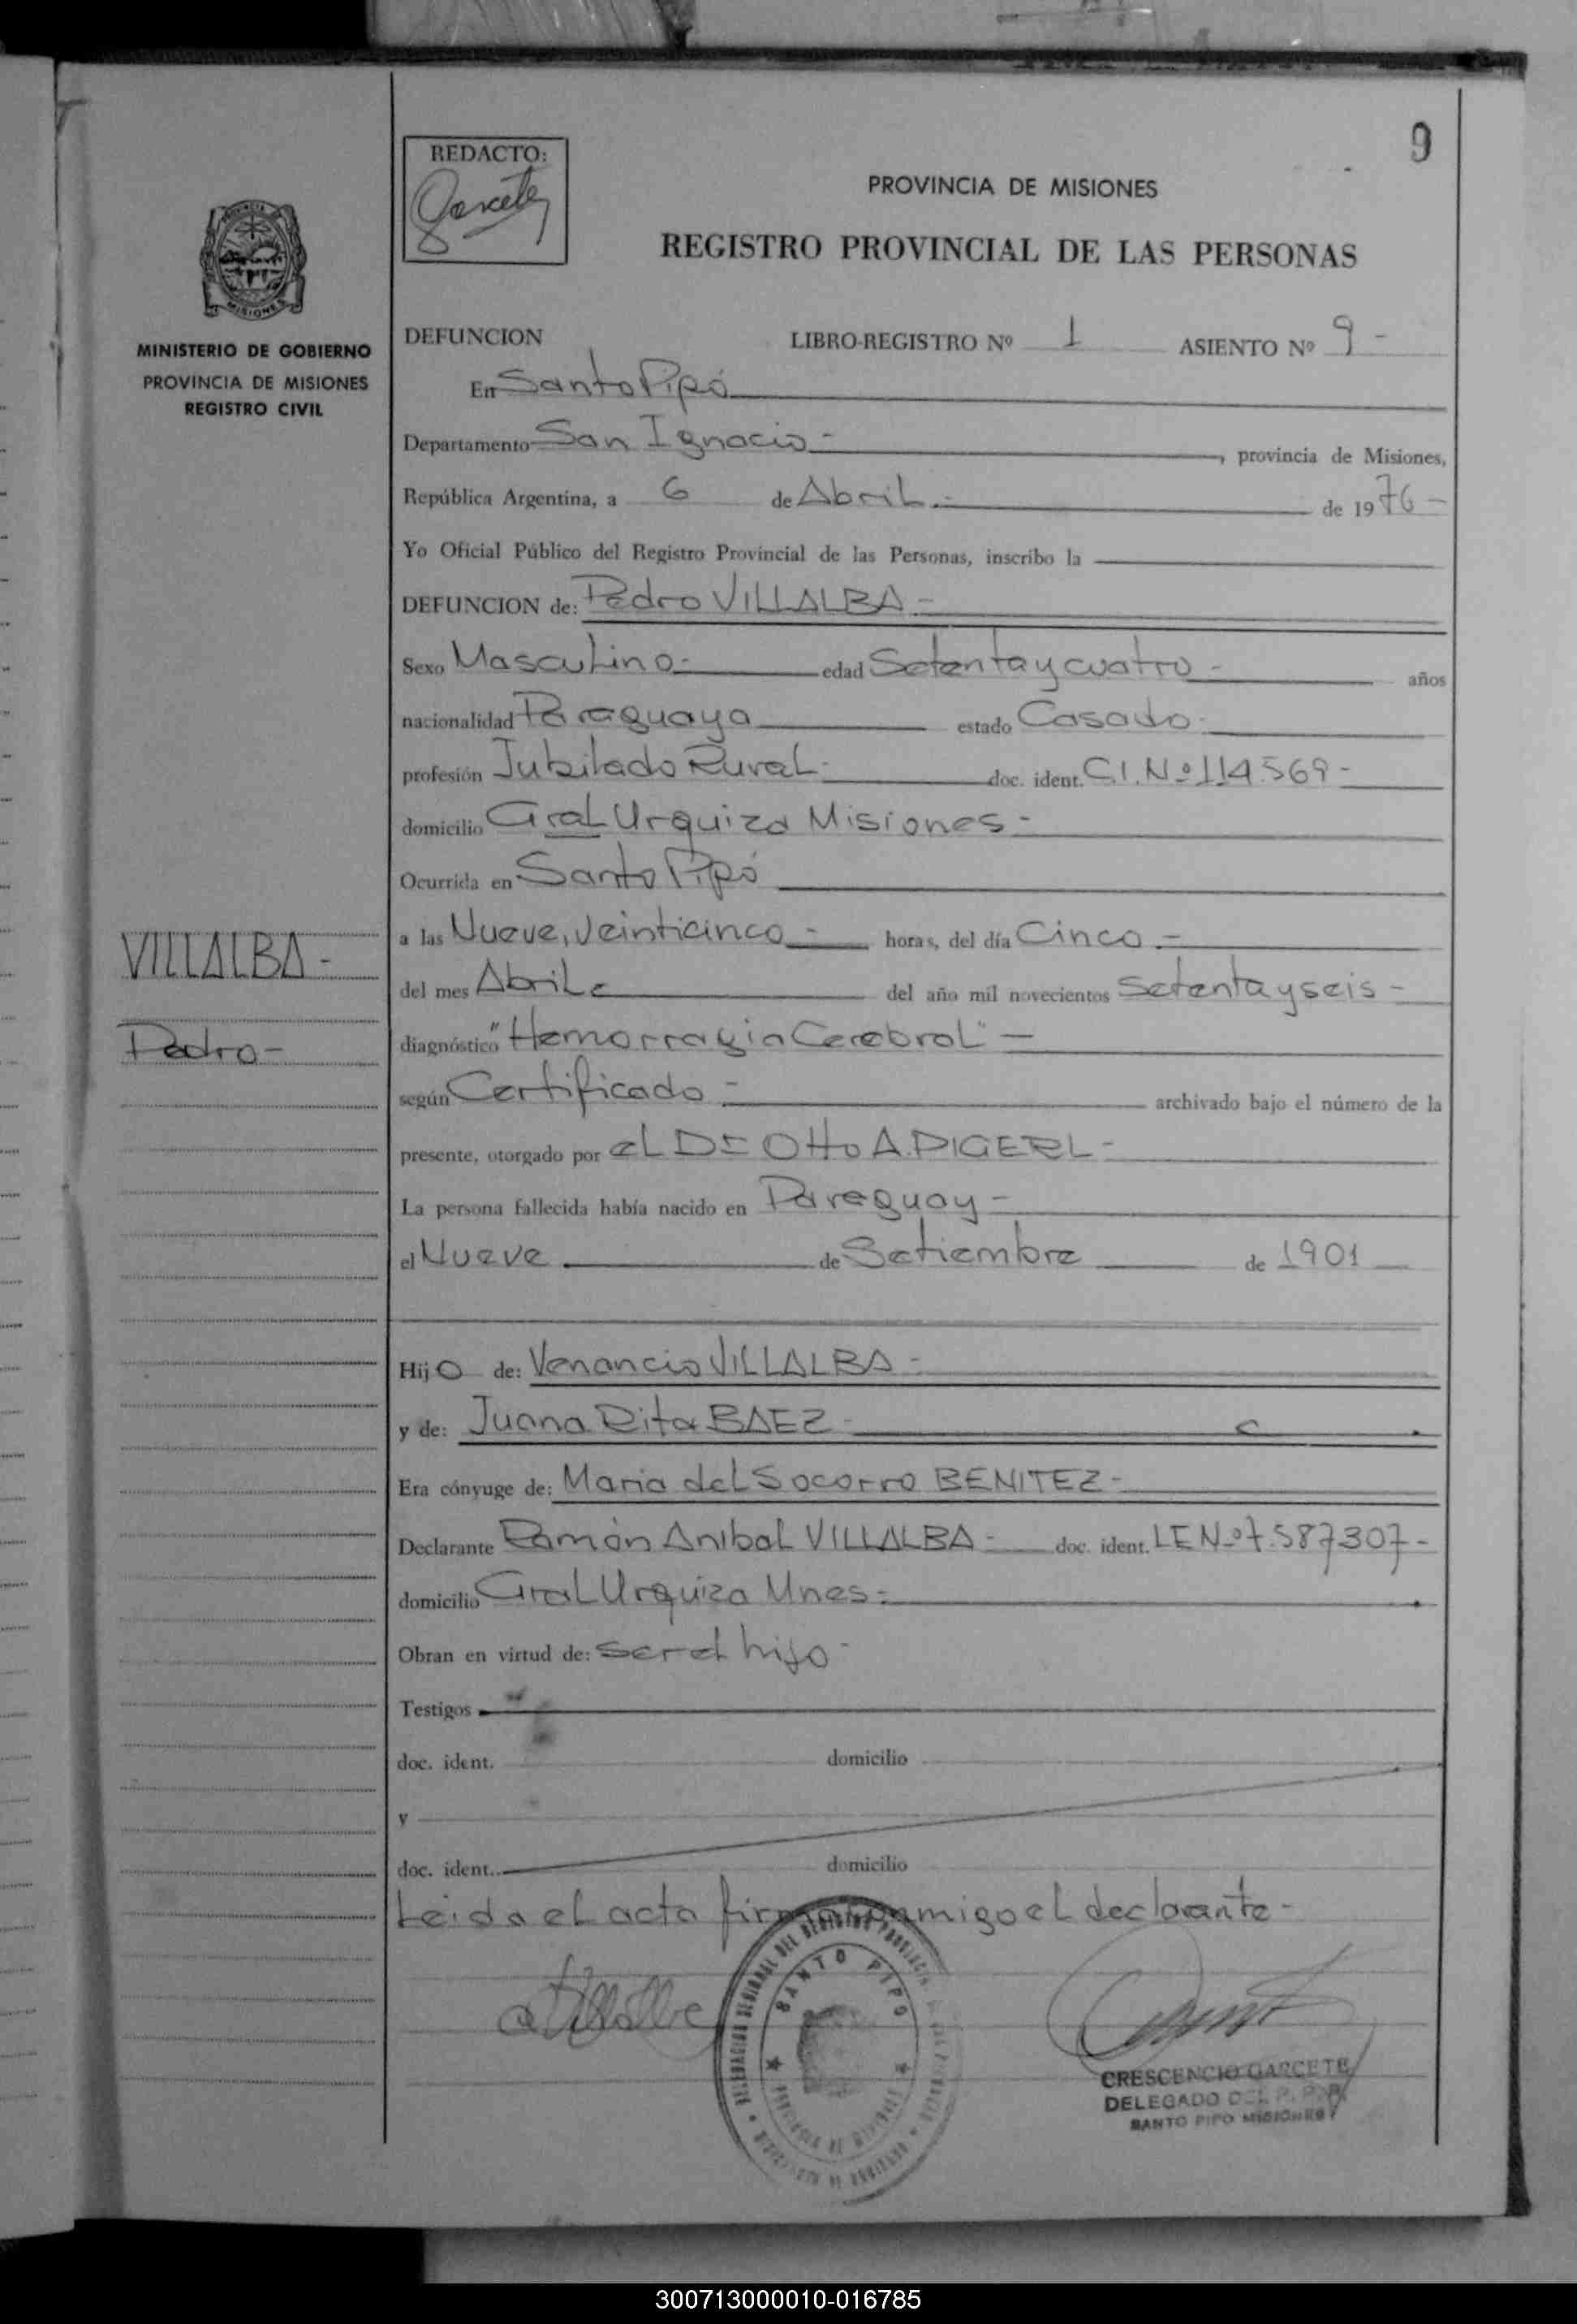 9
REDACTO:
Garcete
PROVINCIA DE MISIONES
REGISTRO PROVINCIAL DE LAS PERSONAS
MISIONES
MINISTERIO DE GOBIERNO
PROVINCIA DE MISIONES
REGISTRO CIVIL
VILLALBA -
Pedro -
DEFUNCION LIBRO-REGISTRO Nº 1 ASIENTO Nº 9 -
En Santo Pipó
Departamento San Ignacio - , provincia de Misiones,
República Argentina, a 6 de Abril.- de 1976 -
Yo Oficial Público del Registro Provincial de las Personas, inscribo la
DEFUNCION de: Pedro VILLALBA -
Sexo Masculino - edad Setenta y cuatro - años
nacionalidad Paraguaya estado Casado -
profesión Jubilado Rural - doc. ident. C.I. Nº 114.569 -
domicilio Gral Urquiza Misiones -
Ocurrida en Santo Pipó
a las Nueve, veinticinco - horas, del día Cinco -
del mes Abril del año mil novecientos Setenta y seis -
diagnóstico "Hemorragia Cerebral" -
según Certificado - archivado bajo el número de la
presente, otorgado por el Dr Otto A. PIGERL -
La persona fallecida había nacido en Paraguay -
el Nueve de Setiembre de 1901
Hijo de: Venancio VILLALBA -
y de: Juana Rita BAEZ -
Era cónyuge de: Maria del Socorro BENITEZ -
Declarante Ramón Anibal VILLALBA - doc. ident. LE Nº 7.587307 -
domicilio Gral Urquiza Mnes -
Obran en virtud de: ser el hijo -
Testigos
doc. ident. domicilio
y
doc. ident. domicilio
Leida el acta firma conmigo el declarante -
SANTO PIPO
CRESCENCIO GARCETE
DELEGADO DEL R. P. P.
SANTO PIPO MISIONES
300713000010-016785